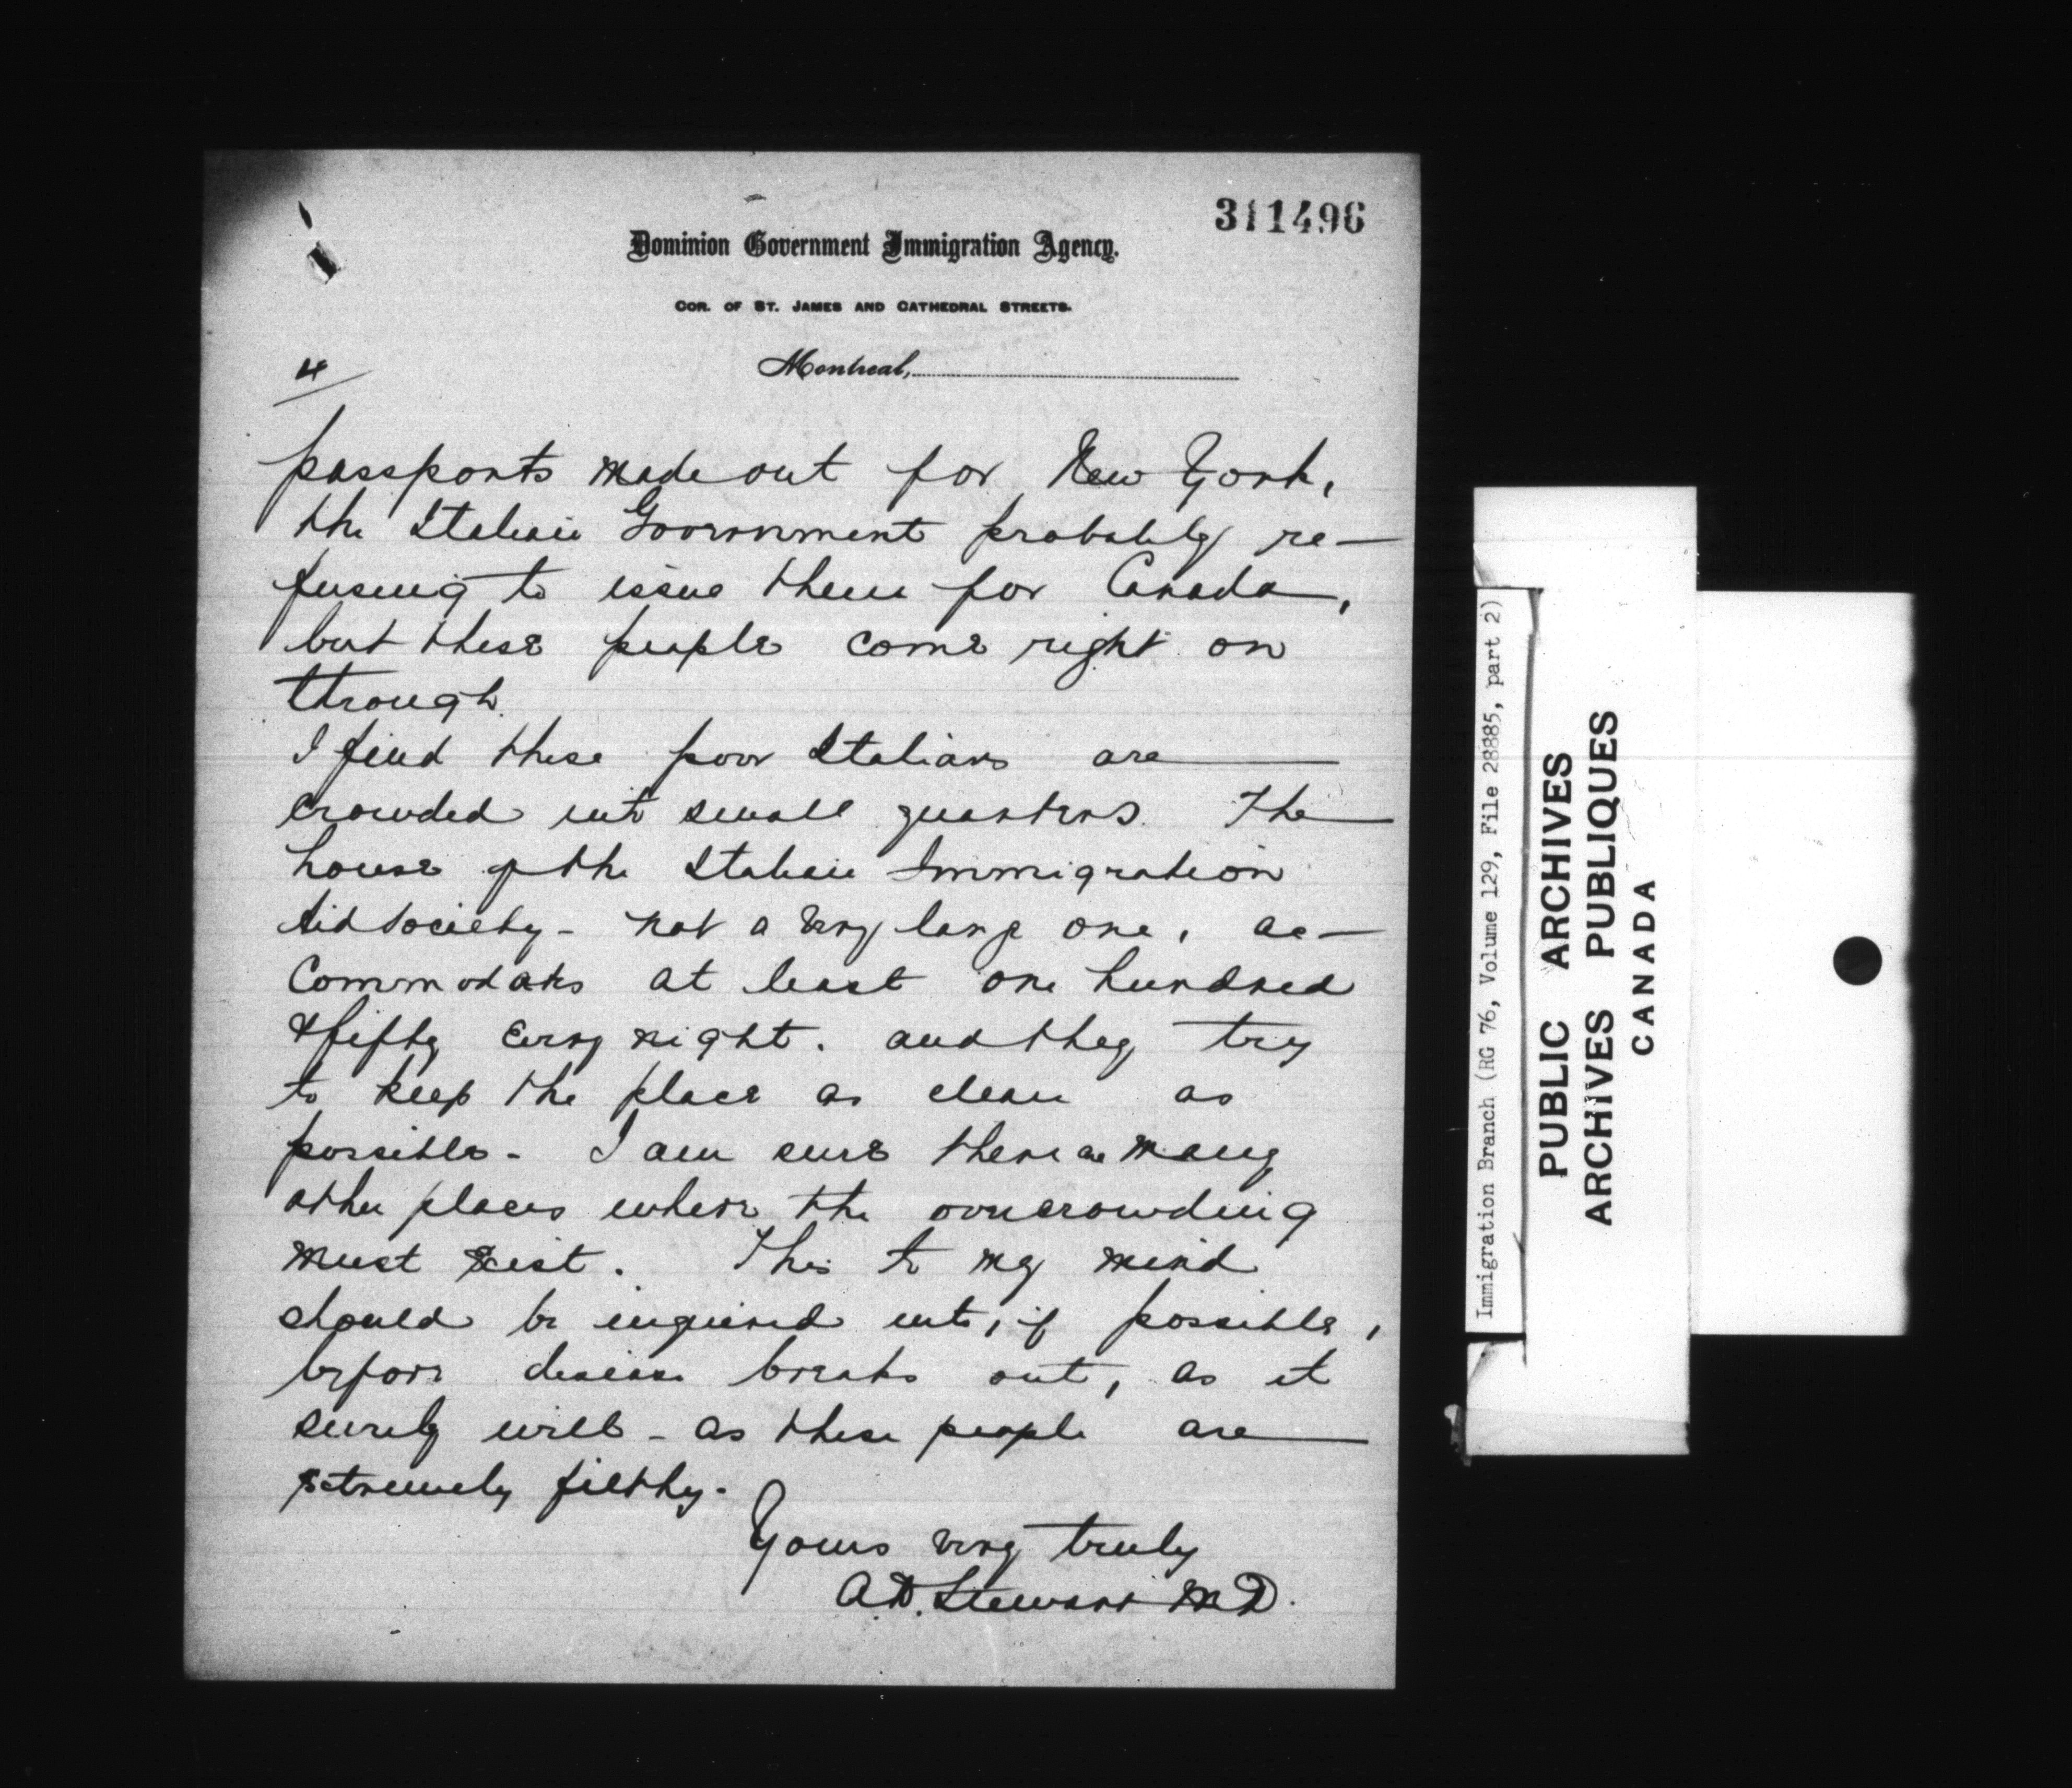 311496
Dominion Government Immigration Agency.
COR. OF ST. JAMES AND CATHEDRAL STREETS.
4
Montreal,
passports made out for New York,
the Italian Government probably re-
fusing to issue them for Canada,
but these people come right on
through.
I find these poor Italians are
crowded into small quarters. The
house of the Italian Immigration
Aid Society - not a very large one, ac-
commodates at least one hundred
& fifty every night. and they try
to keep the place as clean as
possible - I am sure there are many
other places where the overcrowding
must exist. This to my mind
should be inquired into, if possible,
before disease breaks out, as it
surely will - as these people are
extremely filthy.
Yours very truly
A.D. Stewart M.D.
Immigration Branch (RG 76, Volume 129, File 28885, part 2)
PUBLIC ARCHIVES
ARCHIVES PUBLIQUES
CANADA